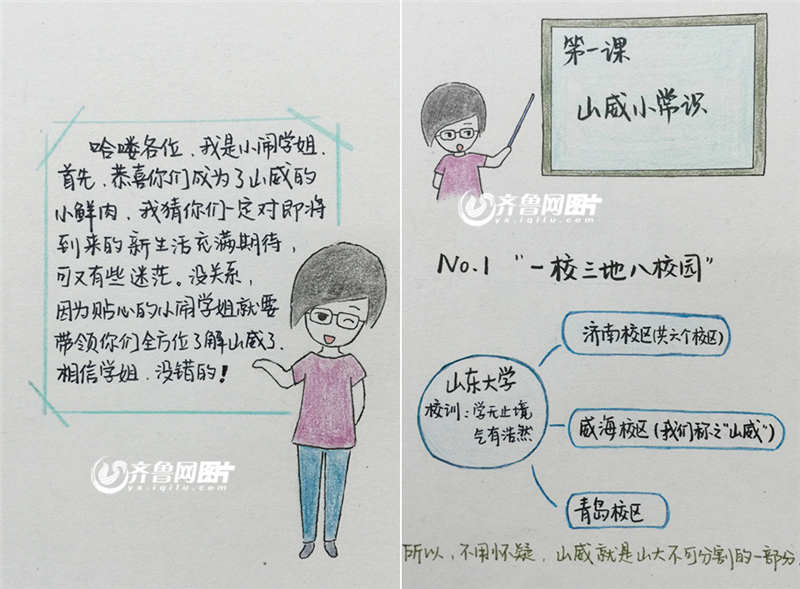 哈喽各位，我是小闹学姐.
首先，恭喜你们成为了山威的
小鲜肉，我猜你们一定对即将
到来的新生活充满期待，
可又有些迷茫。没关系，
因为贴心的小闹学姐就要
带领你们全方位了解山威了.
相信学姐，没错的！
齐鲁网图片
yx.iqilu.com
第一课
山威小常识
齐鲁网图片
yx.iqilu.com
No.1 "一校三地八校园"
济南校区(共六个校区)
山东大学
校训：学无止境
气有浩然
威海校区(我们称之"山威")
青岛校区
所以，不用怀疑，山威就是山大不可分割的一部分.